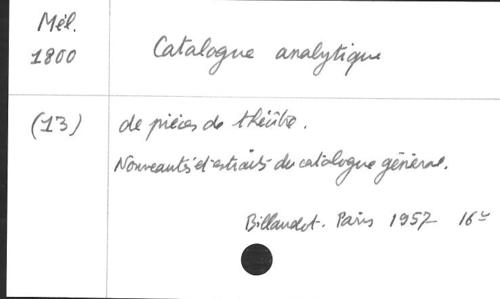 Mél.
1800
Catalogue analytique
(13)
de pièces de théâtre.
Nouveautés et extraits du catalogue général.
Billaudot. Paris 1957 16º